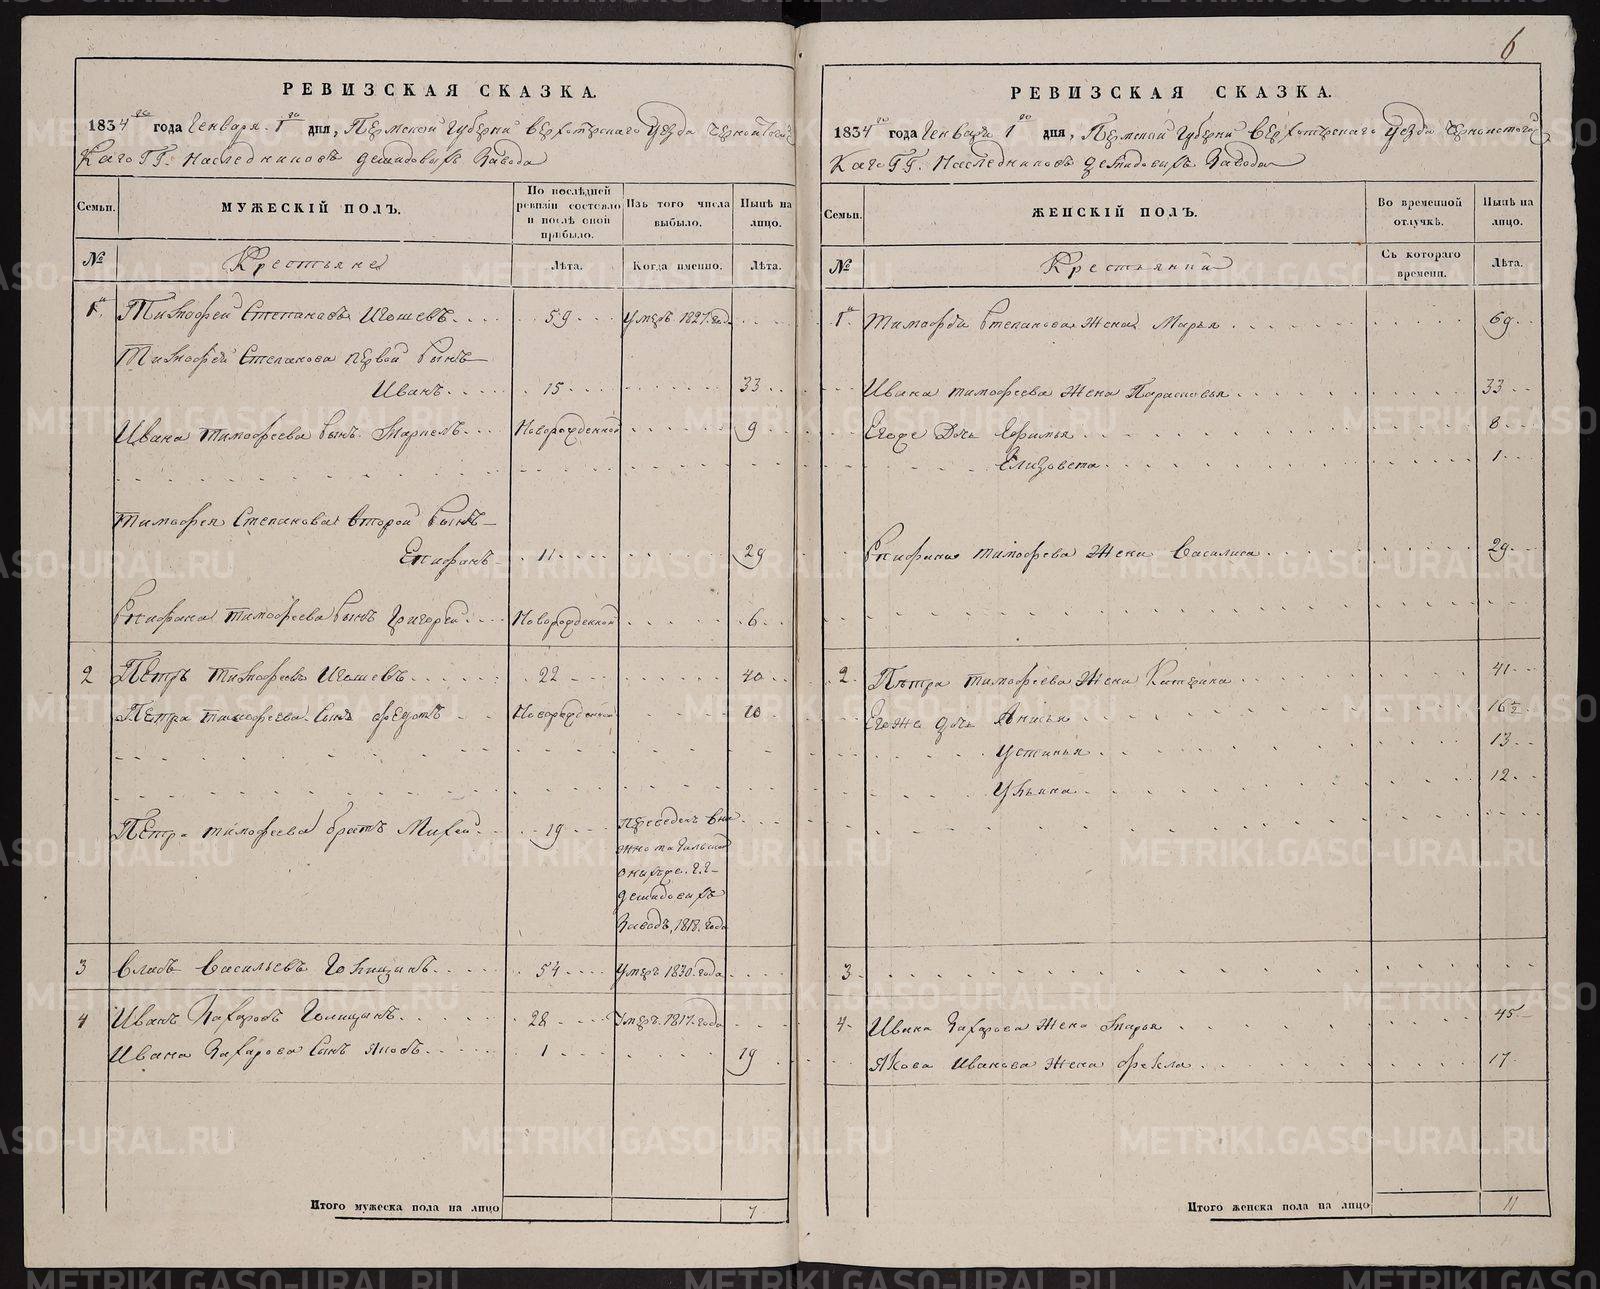 6
РЕВИЗСКАЯ СКАЗКА.
1834го года Генваря 1го дня, Пермской Губернии Верхотурскаго Уезда Черноисточин
скаго ГГ. Наследниковъ Демидовыхъ Завода
Семьи. МУЖЕСКІЙ ПОЛЪ. По послѣдней ревизіи состояло и послѣ оной прибыло. Изъ того числа выбыло. Нынѣ на лицо.
№ Крестьяне Лѣта. Когда именно. Лѣта.
1й Тимофей Степановъ Игошевъ 59 умеръ 1827 года
Тимофея Степанова первой сынъ
Иванъ 15 33
Ивана Тимофеева сынъ Новорожденной 9
Тимофея Степанова второй сынъ
Епифанъ 11 29
Епифана Тимофеева сынъ Григорей Новорожденной 6
2 Петръ Тимофеевъ Игошевъ 22 40
Петра Тимофеева сынъ Федотъ Новорожденной 10
Петра Тимофеева братъ Михей 19 Переведенъ в Ни
жнотагильской
ониъхже Г.Г.
Демидовыхъ
Заводъ, 1818 года
3 Власъ Васильевъ 54 умеръ 1830 года
4 Иванъ Захаровъ Голицынъ 28 умеръ 1817 года
Ивана Захарова сынъ Яковъ 1 19
Итого мужеска пола на лицо 7
РЕВИЗСКАЯ СКАЗКА.
1834го года Генваря 1го дня, Пермской Губернии Верхотурскаго Уезда Черноисточин
скаго ГГ. Наследниковъ Демидовыхъ Завода
Семьи. ЖЕНСКІЙ ПОЛЪ. Во временной отлучкѣ. Нынѣ на лицо.
№ Крестьянки Съ котораго времени. Лѣта.
1й Тимофея Степанова жена Марья 69
Ивана Тимофеева жена Парасковья 33
Егоже дочь Ефимья 8
Елизовета 1
Епифана Тимофеева жена Василиса 29
2 Петра Тимофеева жена Катерина 41
Егоже дочь Анисья 16½
Устинья 13
Ульяна 12
3
4 Ивана Захарова жена Марья 45
Якова Иванова жена Фекла 17
Итого женска пола на лицо 11
METRIKI.GASO-URAL.RU